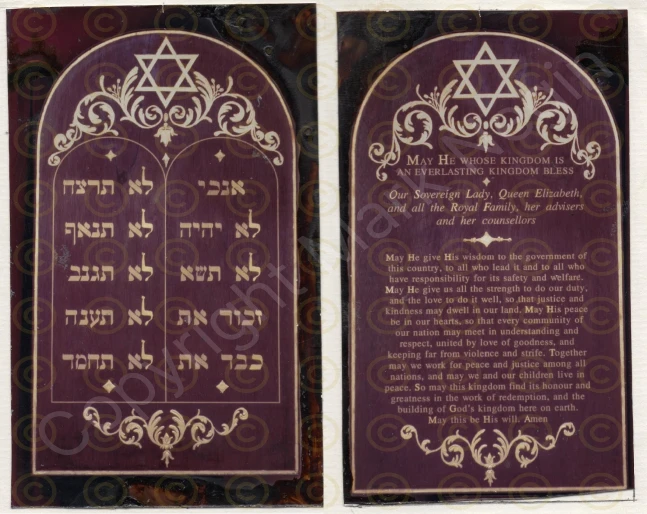 אנכי
לא יהיה
לא תשא
זכור את
כבד את
לא תרצח
לא תנאף
לא תגנב
לא תענה
לא תחמד
MAY HE WHOSE KINGDOM IS
AN EVERLASTING KINGDOM BLESS
Our Sovereign Lady, Queen Elizabeth,
and all the Royal Family, her advisers
and her counsellors
May He give His wisdom to the government of
this country, to all who lead it and to all who
have responsibility for its safety and welfare.
May He give us all the strength to do our duty,
and the love to do it well, so that justice and
kindness may dwell in our land. May His peace
be in our hearts, so that every community of
our nation may meet in understanding and
respect, united by love of goodness, and
keeping far from violence and strife. Together
may we work for peace and justice among all
nations, and may we and our children live in
peace. So may this kingdom find its honour and
greatness in the work of redemption, and the
building of God's kingdom here on earth.
May this be His will. Amen